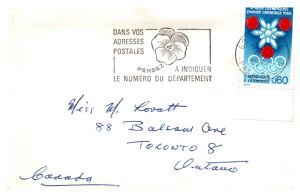 DANS VOS
ADRESSES
POSTALES
PENSEZ
A INDIQUER
LE NUMÉRO DU DÉPARTEMENT
GRENOBLE 1968
0,60
Miss M. Lovatt
88 Balsam Ave
TORONTO 8
Ontario
Canada